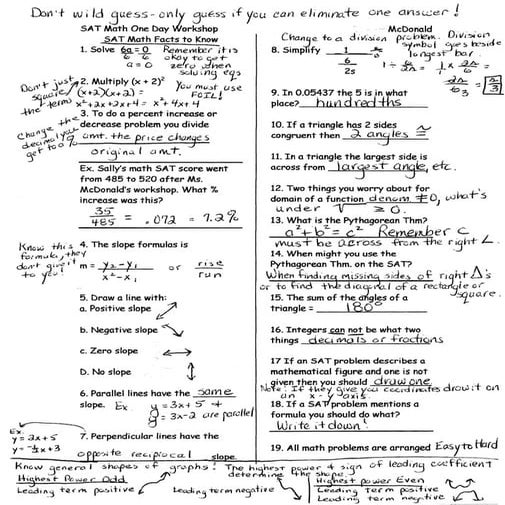 Don't wild guess - only guess if you can eliminate one answer!
SAT Math One Day Workshop
SAT Math Facts to Know
1. Solve 6a = 0 Remember it is
6 6 okay to get
a = 0 zero when
solving eqs
Don't just square the terms
2. Multiply (x + 2)²
(x+2)(x+2) = You must use
x²+2x+2x+4 = x²+4x+4 FOIL!
3. To do a percent increase or
decrease problem you divide
change the decimal you get to a %
amt. the price changes
original amt.
Ex. Sally's math SAT score went
from 485 to 520 after Ms.
McDonald's workshop. What %
increase was this?
35/485 = .072 = 7.2%
Know this formula, they don't give it to you!
4. The slope formulas is
m = y₂-y₁/x₂-x₁ or rise/run
5. Draw a line with:
a. Positive slope
b. Negative slope
c. Zero slope
D. No slope
6. Parallel lines have the same
slope. Ex y = 3x+5 +
y = 3x-2 are parallel
Ex.
y = 2x+5
y = -½x+3
7. Perpendicular lines have the
opposite reciprocal slope.
McDonald
Change to a division problem. Division
symbol goes beside
longest bar.
8. Simplify 1
6
2s
1 ÷ 6/2s = 1/1 x 2s/6 =
2s/6 = s/3
9. In 0.05437 the 5 is in what
place? hundredths
10. If a triangle has 2 sides
congruent then 2 angles ≅
11. In a triangle the largest side is
across from largest angle, etc.
12. Two things you worry about for
domain of a function denom ≠0, what's
under √ ≥ 0.
13. What is the Pythagorean Thm?
a²+b²=c² Remember c
must be across from the right ∠.
14. When might you use the
Pythagorean Thm. on the SAT?
When finding missing sides of right Δ's
or to find the diagonal of a rectangle or
square.
15. The sum of the angles of a
triangle = 180°
16. Integers can not be what two
things decimals or fractions
17 If an SAT problem describes a
mathematical figure and one is not
given then you should draw one
Note: If they give you coordinates draw it on
an x - y axis.
18. If a SAT problem mentions a
formula you should do what?
Write it down!
19. All math problems are arranged Easy to Hard
Know general shapes of graphs! The highest power + sign of leading coefficient
determine the shape.
Highest power Odd
Leading term positive
Leading term negative
Highest power Even
Leading term positive
Leading term negative